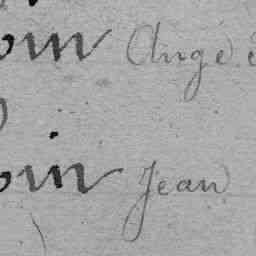 oin Ange
oin Jean